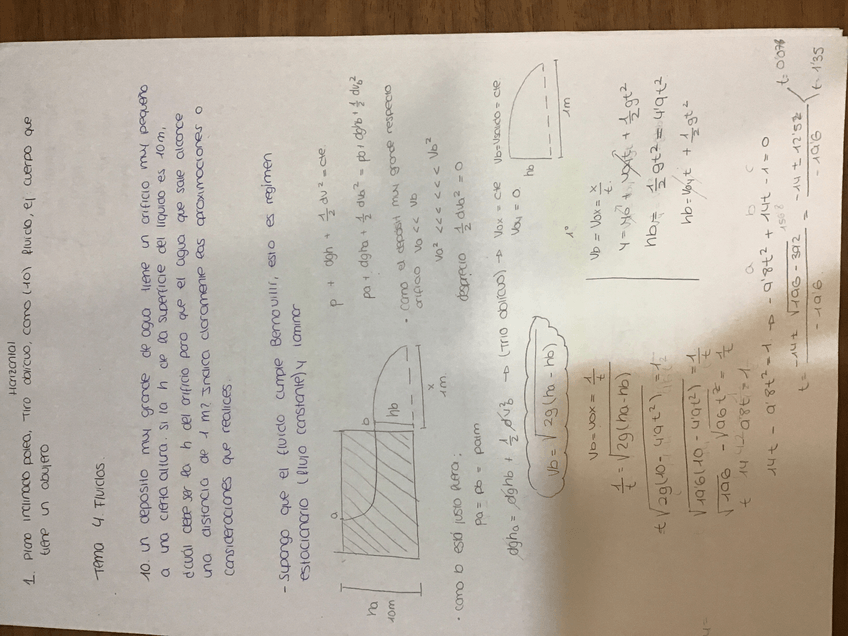 Horizontal
1. Plano inclinado polea, Tiro oblicuo, como (10) fluido, ej cuerpo que
tiene un abujero
Tema 4 Fluidos
10. Un deposito muy grande de agua tiene un orificio muy pequeño
a una cierta altura. Si la h de la superficie del liquido es 10m,
¿cuál debe ser la h del orificio para que el agua que sale alcance
una distancia de 1 m? Indica claramente las aproximaciones o
consideraciones que realices.
- Supongo que el fluido cumple Bernouilli, esto es regimen
estacionario (flujo constante) y laminar
ha
10m
a
b
hb
x
1m
p + dgh + 1/2 dv² = cte
pa + dgha + 1/2 dva² = pb + dghb + 1/2 dvb²
• como el deposit muy grande respecto
orificio va << vb
va² <<<<<< vb²
desprecio 1/2 dva² = 0
• como b está justo fuera:
pa = pb = patm
dgha = dghb + 1/2 dvb² → (Tiro oblicuo) → vox = cte vb = vsalida = cte
voy = 0
vb = √2g(ha - hb)
hb
1m
1º
vb = vox = 1/t
1/t = √2g(ha-hb)
t √2g(10 - 4'9t²) = 1
√196(10 - 4'9t²) = 1/t
√196 - √96t² = 1/t
t 14 - 9'8t = 1
14t - 9'8t² = 1 → -9'8t² + 14t - 1 = 0
a b c
t = -14 ± √196 - 39'2 / -19'6 = -14 ± 12'52 / -19'6
t = 0'076
t = 1'35
vb = vox = x/t
hb = 1/2 gt² = 4'9t²
hb = voy t + 1/2 gt²